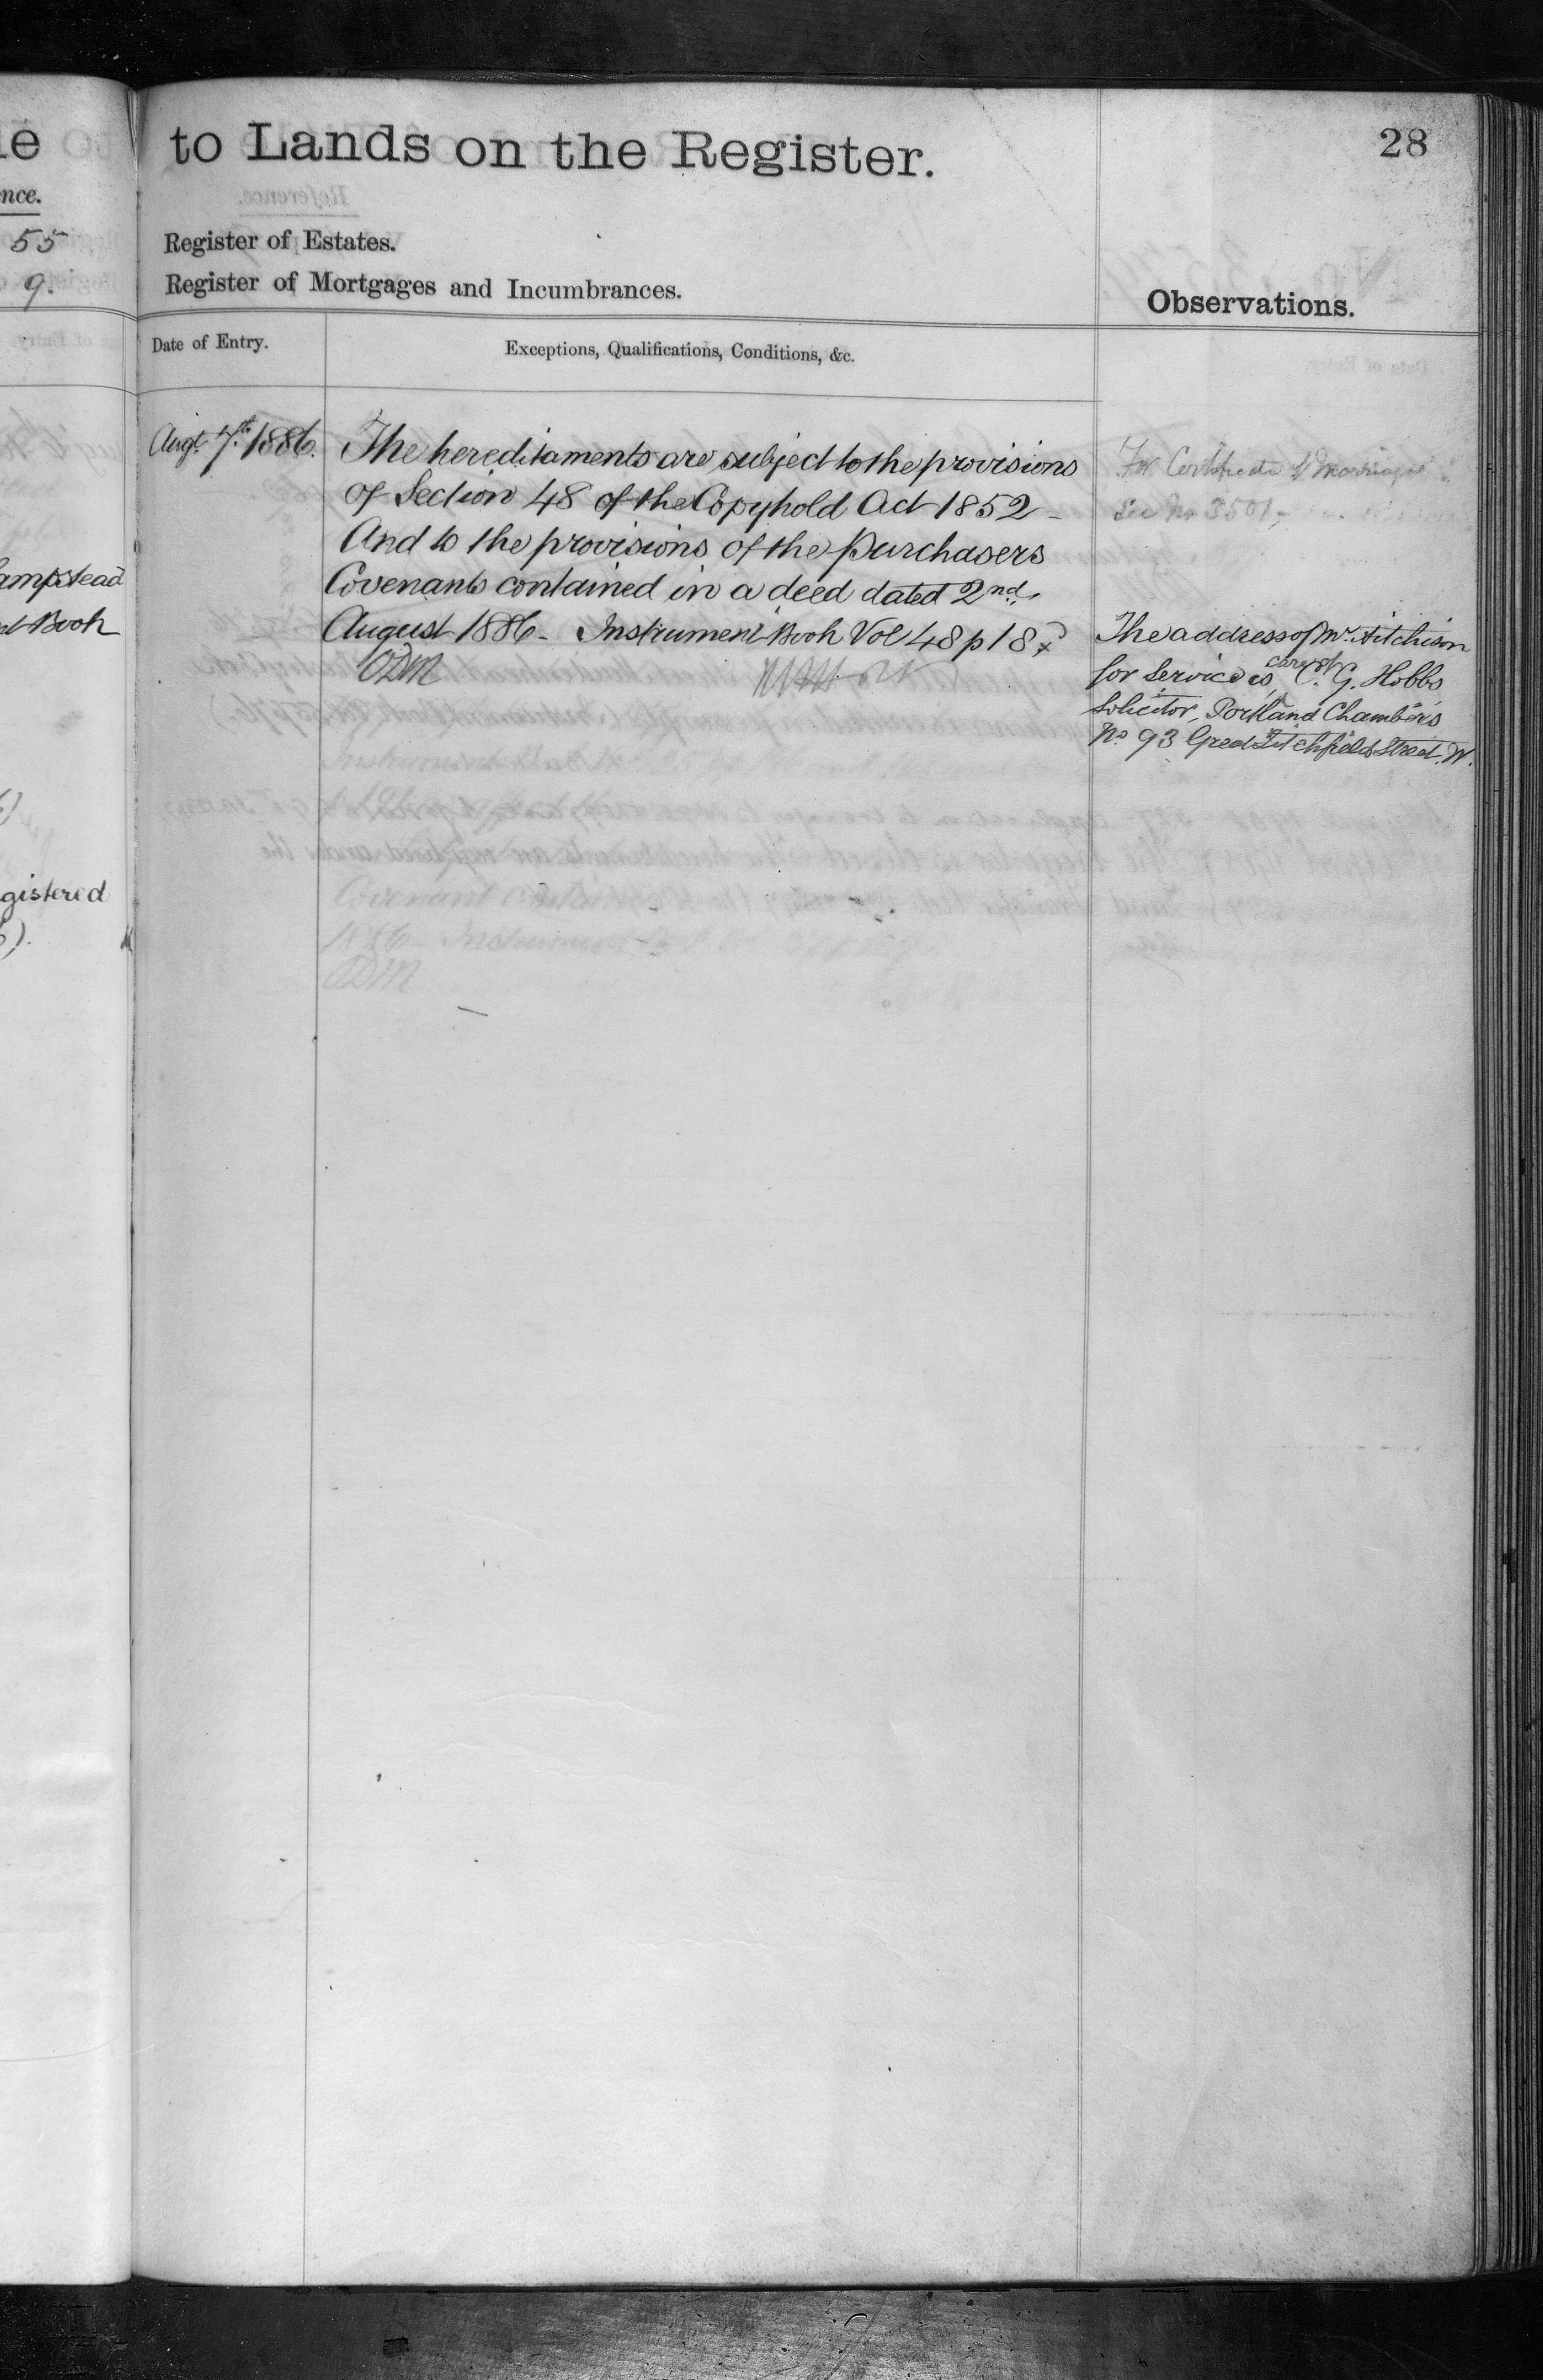 le
nce.
55
9.
ampstead
Book
gistered
to Lands on the Register.
28
Register of Estates.
Register of Mortgages and Incumbrances.
Observations.
Date of Entry.
Exceptions, Qualifications, Conditions, &c.
Augt. 7th 1886.
The hereditaments are subject to the provisions
of Section 48 of the Copyhold Act 1852 -
And to the provisions of the Purchasers
Covenants contained in a deed dated 2nd
August 1886 - Instrument Book Vol 48 p 18
ODM
For Certificate of Marriage
See No 3501 -
The address of Mr. Aitchison
for service is care of C. G. Hobbs
Solicitor, Portland Chambers
No. 93 Great Titchfield Street. W.